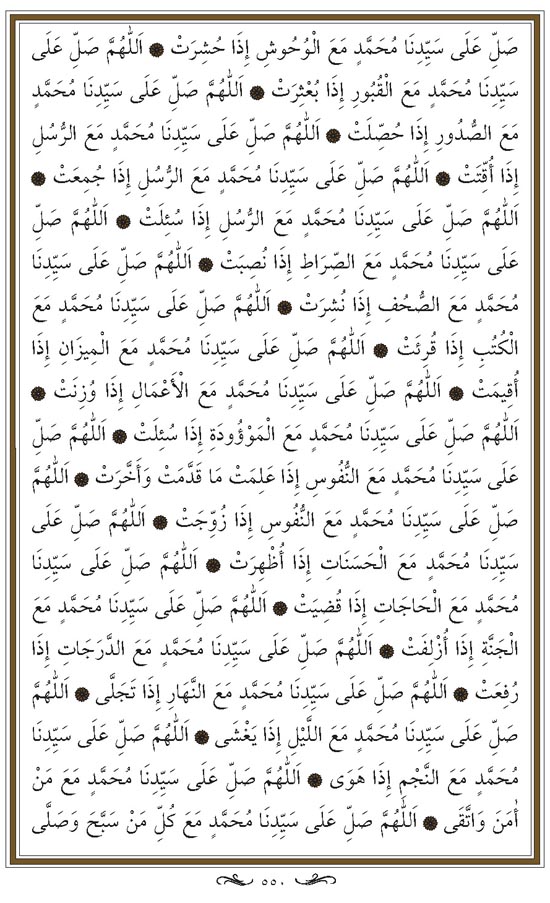 صَلِّ عَلَى سَيِّدِنَا مُحَمَّدٍ مَعَ الْوُحُوشِ إِذَا حُشِرَتْ ۞ اَللّٰهُمَّ صَلِّ عَلَى
سَيِّدِنَا مُحَمَّدٍ مَعَ الْقُبُورِ إِذَا بُعْثِرَتْ ۞ اَللّٰهُمَّ صَلِّ عَلَى سَيِّدِنَا مُحَمَّدٍ
مَعَ الصُّدُورِ إِذَا حُصِّلَتْ ۞ اَللّٰهُمَّ صَلِّ عَلَى سَيِّدِنَا مُحَمَّدٍ مَعَ الرُّسُلِ
إِذَا أُقِّتَتْ ۞ اَللّٰهُمَّ صَلِّ عَلَى سَيِّدِنَا مُحَمَّدٍ مَعَ الرُّسُلِ إِذَا جُمِعَتْ ۞
اَللّٰهُمَّ صَلِّ عَلَى سَيِّدِنَا مُحَمَّدٍ مَعَ الرُّسُلِ إِذَا سُئِلَتْ ۞ اَللّٰهُمَّ صَلِّ
عَلَى سَيِّدِنَا مُحَمَّدٍ مَعَ الصِّرَاطِ إِذَا نُصِبَتْ ۞ اَللّٰهُمَّ صَلِّ عَلَى سَيِّدِنَا
مُحَمَّدٍ مَعَ الصُّحُفِ إِذَا نُشِرَتْ ۞ اَللّٰهُمَّ صَلِّ عَلَى سَيِّدِنَا مُحَمَّدٍ مَعَ
الْكُتُبِ إِذَا قُرِئَتْ ۞ اَللّٰهُمَّ صَلِّ عَلَى سَيِّدِنَا مُحَمَّدٍ مَعَ الْمِيزَانِ إِذَا
أُقِيمَتْ ۞ اَللّٰهُمَّ صَلِّ عَلَى سَيِّدِنَا مُحَمَّدٍ مَعَ الْأَعْمَالِ إِذَا وُزِنَتْ ۞
اَللّٰهُمَّ صَلِّ عَلَى سَيِّدِنَا مُحَمَّدٍ مَعَ الْمَوْؤُودَةِ إِذَا سُئِلَتْ ۞ اَللّٰهُمَّ صَلِّ
عَلَى سَيِّدِنَا مُحَمَّدٍ مَعَ النُّفُوسِ إِذَا عَلِمَتْ مَا قَدَّمَتْ وَأَخَّرَتْ ۞ اَللّٰهُمَّ
صَلِّ عَلَى سَيِّدِنَا مُحَمَّدٍ مَعَ النُّفُوسِ إِذَا زُوِّجَتْ ۞ اَللّٰهُمَّ صَلِّ عَلَى
سَيِّدِنَا مُحَمَّدٍ مَعَ الْحَسَنَاتِ إِذَا أُظْهِرَتْ ۞ اَللّٰهُمَّ صَلِّ عَلَى سَيِّدِنَا
مُحَمَّدٍ مَعَ الْحَاجَاتِ إِذَا قُضِيَتْ ۞ اَللّٰهُمَّ صَلِّ عَلَى سَيِّدِنَا مُحَمَّدٍ مَعَ
الْجَنَّةِ إِذَا أُزْلِفَتْ ۞ اَللّٰهُمَّ صَلِّ عَلَى سَيِّدِنَا مُحَمَّدٍ مَعَ الدَّرَجَاتِ إِذَا
رُفِعَتْ ۞ اَللّٰهُمَّ صَلِّ عَلَى سَيِّدِنَا مُحَمَّدٍ مَعَ النَّهَارِ إِذَا تَجَلَّى ۞ اَللّٰهُمَّ
صَلِّ عَلَى سَيِّدِنَا مُحَمَّدٍ مَعَ اللَّيْلِ إِذَا يَغْشَى ۞ اَللّٰهُمَّ صَلِّ عَلَى سَيِّدِنَا
مُحَمَّدٍ مَعَ النَّجْمِ إِذَا هَوَى ۞ اَللّٰهُمَّ صَلِّ عَلَى سَيِّدِنَا مُحَمَّدٍ مَعَ مَنْ
أٰمَنَ وَاتَّقَى ۞ اَللّٰهُمَّ صَلِّ عَلَى سَيِّدِنَا مُحَمَّدٍ مَعَ كُلِّ مَنْ سَبَّحَ وَصَلَّى
٥٥٠